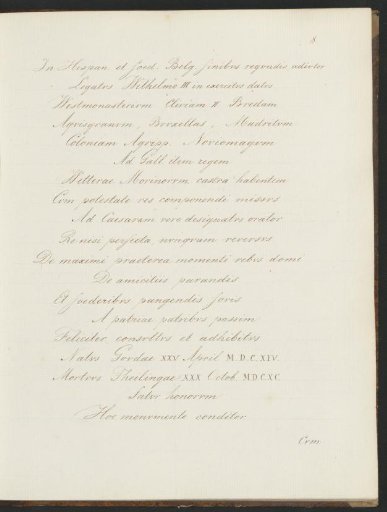 8
In Hispan. et foed. Belg. finibvs regvndis adivtor
Legatvs Wilhelmo III in exercitvs datvs
Westmonasterivm Cliviam II Bredam
Aqvisgranvm, Brvxellas, Madritvm
Coloniam Agripp. Noviomagvm
Ad Gall. item regem
Witterae Morinorvm castra habentem
Cvm potestate res componendi missvs
Ad Caesarem vero designatvs orator
Re nisi perfecta nvnqvam reversvs
De maximi praeterea momenti rebvs domi
De amicitiis parandis
Et foederibvs pangendis foris
A patriae patribvs passim
Feliciter consvltvs et adhibitvs
Natvs Govdae XXV April M.D.C.XIV.
Mortvvs Theilingae XXX Octob. MDCXC.
Satvr honorvm
Hoc monvmento conditor
Cvm